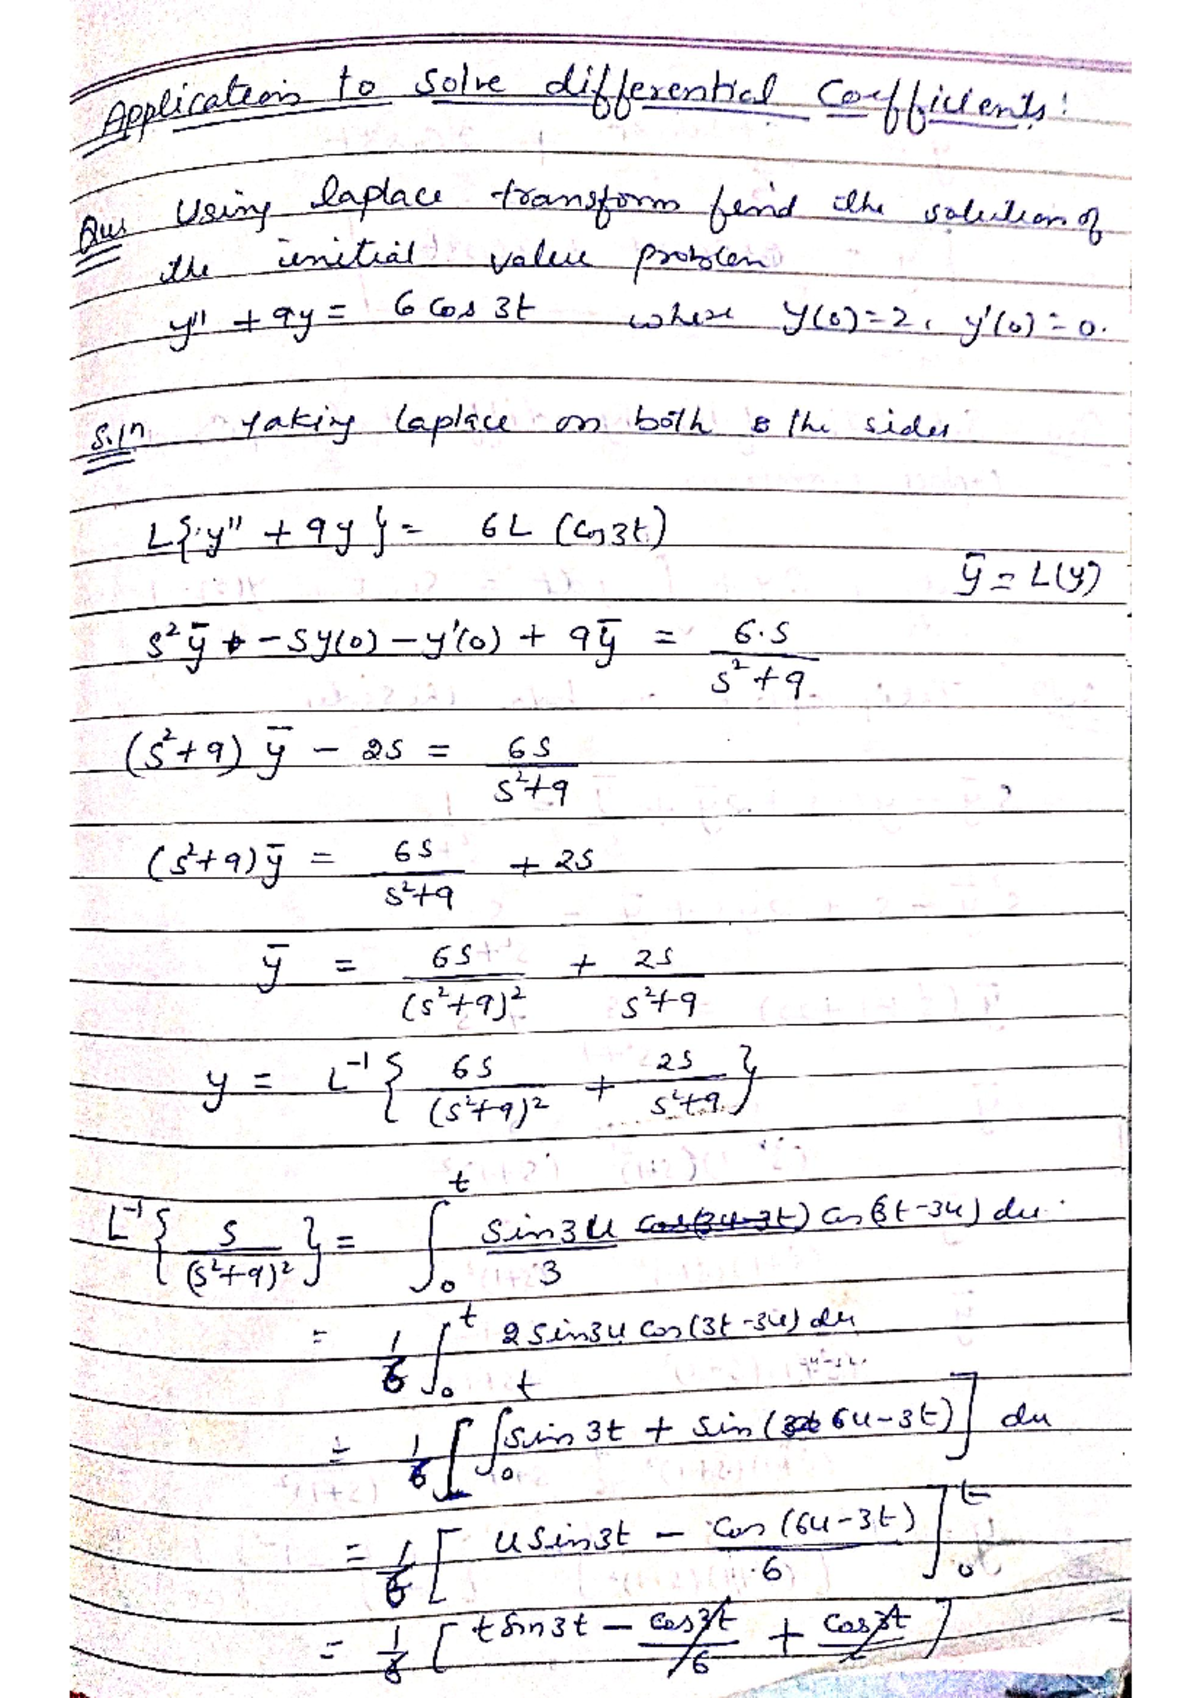 Application to solve differential Coefficients:
Qus Using laplace transform find the solution of
the initial value problem
y'' + 9y = 6 Cos 3t where y(0)=2, y'(0)=0.
Soln Taking laplace on both the sides
L{y'' + 9y} = 6L (Cos3t)
ȳ = L(y)
s²ȳ - sy(0) - y'(0) + 9ȳ = 6.s / s²+9
(s²+9) ȳ - 2s = 6s / s²+9
(s²+9)ȳ = 6s / s²+9 + 2s
ȳ = 6s / (s²+9)² + 2s / s²+9
y = L⁻¹{ 6s / (s²+9)² + 2s / s²+9 }
L⁻¹{ s / (s²+9)² } = ∫₀ᵗ sin3u / 3 cos(3u-3t) Cos(3t-3u) du.
= 1/6 ∫₀ᵗ 2 sin3u Cos(3t-3u) du
= 1/6 [ ∫₀ᵗ sin 3t + sin (6u-3t) ] du
= 1/6 [ u sin3t - Cos (6u-3t) / 6 ]₀ᵗ
= 1/6 [ t sin3t - cos3t / 6 + Cos3t ]